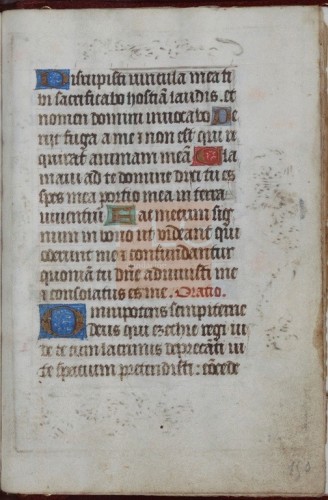 Dirrupisti vincula mea ti
bi sacrificabo hostiā laudis. et
nomen domini invocabo Pe
riit fuga a me ⁊ non est qui re
quirat animam meā Cla
mavi ad te domine dixi tu es
spes mea portio mea in terra
viventiū Fac mecum sig
num in bono ut videant qui
oderunt me ⁊ confundantur
quoniā tu dn̄e adiuvisti me
⁊ consolatus es me. Oratio.
Omnipotens sempiterne
deus qui ezechie regi iu
de te cum lacrimis deprecāti vi
te spacium pretendisti : cōcede